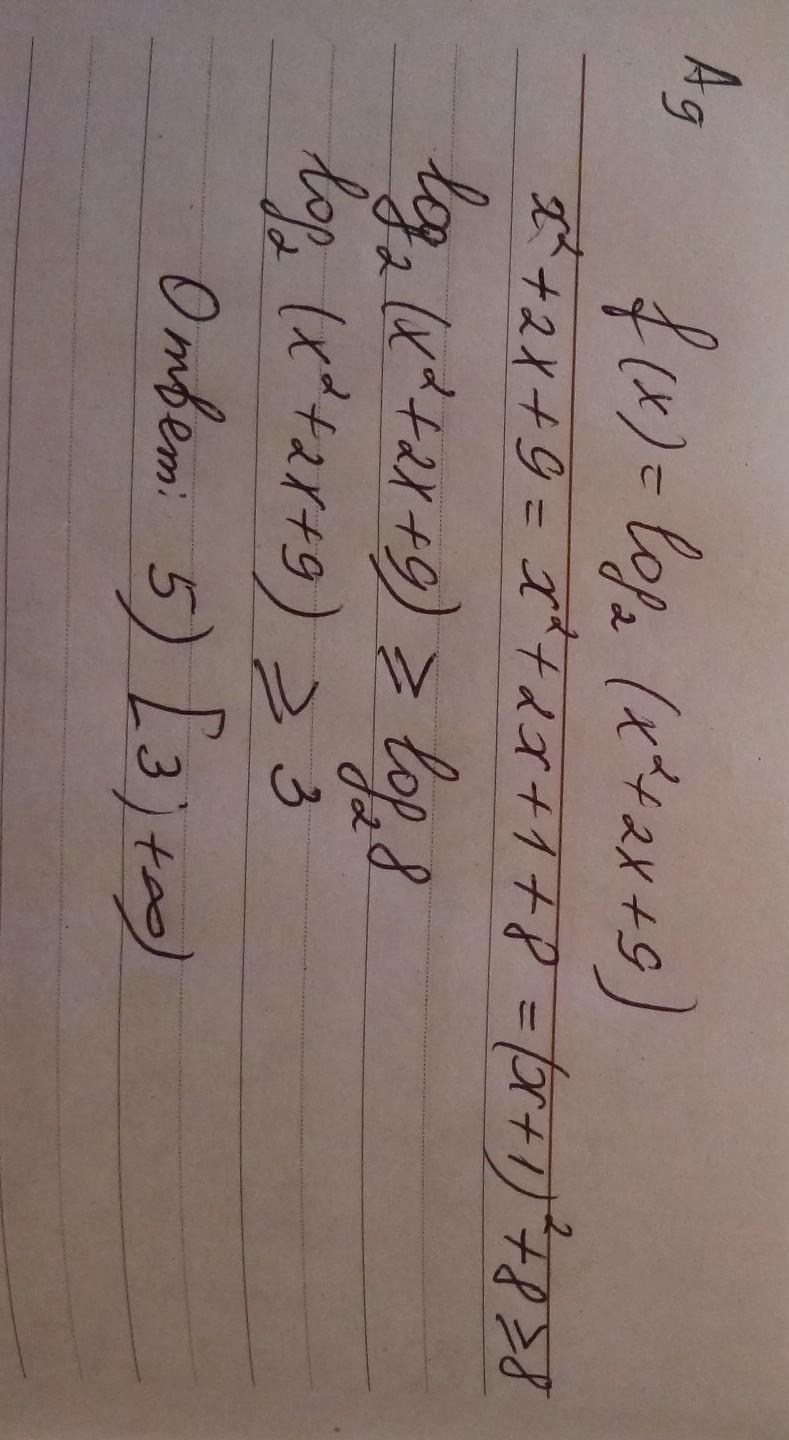 A9
f(x) = log₂ (x² + 2x + 9)
x² + 2x + 9 = x² + 2x + 1 + 8 = (x + 1)² + 8 ≥ 8
log₂ (x² + 2x + 9) ≥ log₂ 8
log₂ (x² + 2x + 9) ≥ 3
Ответ: 5) [3; +∞)